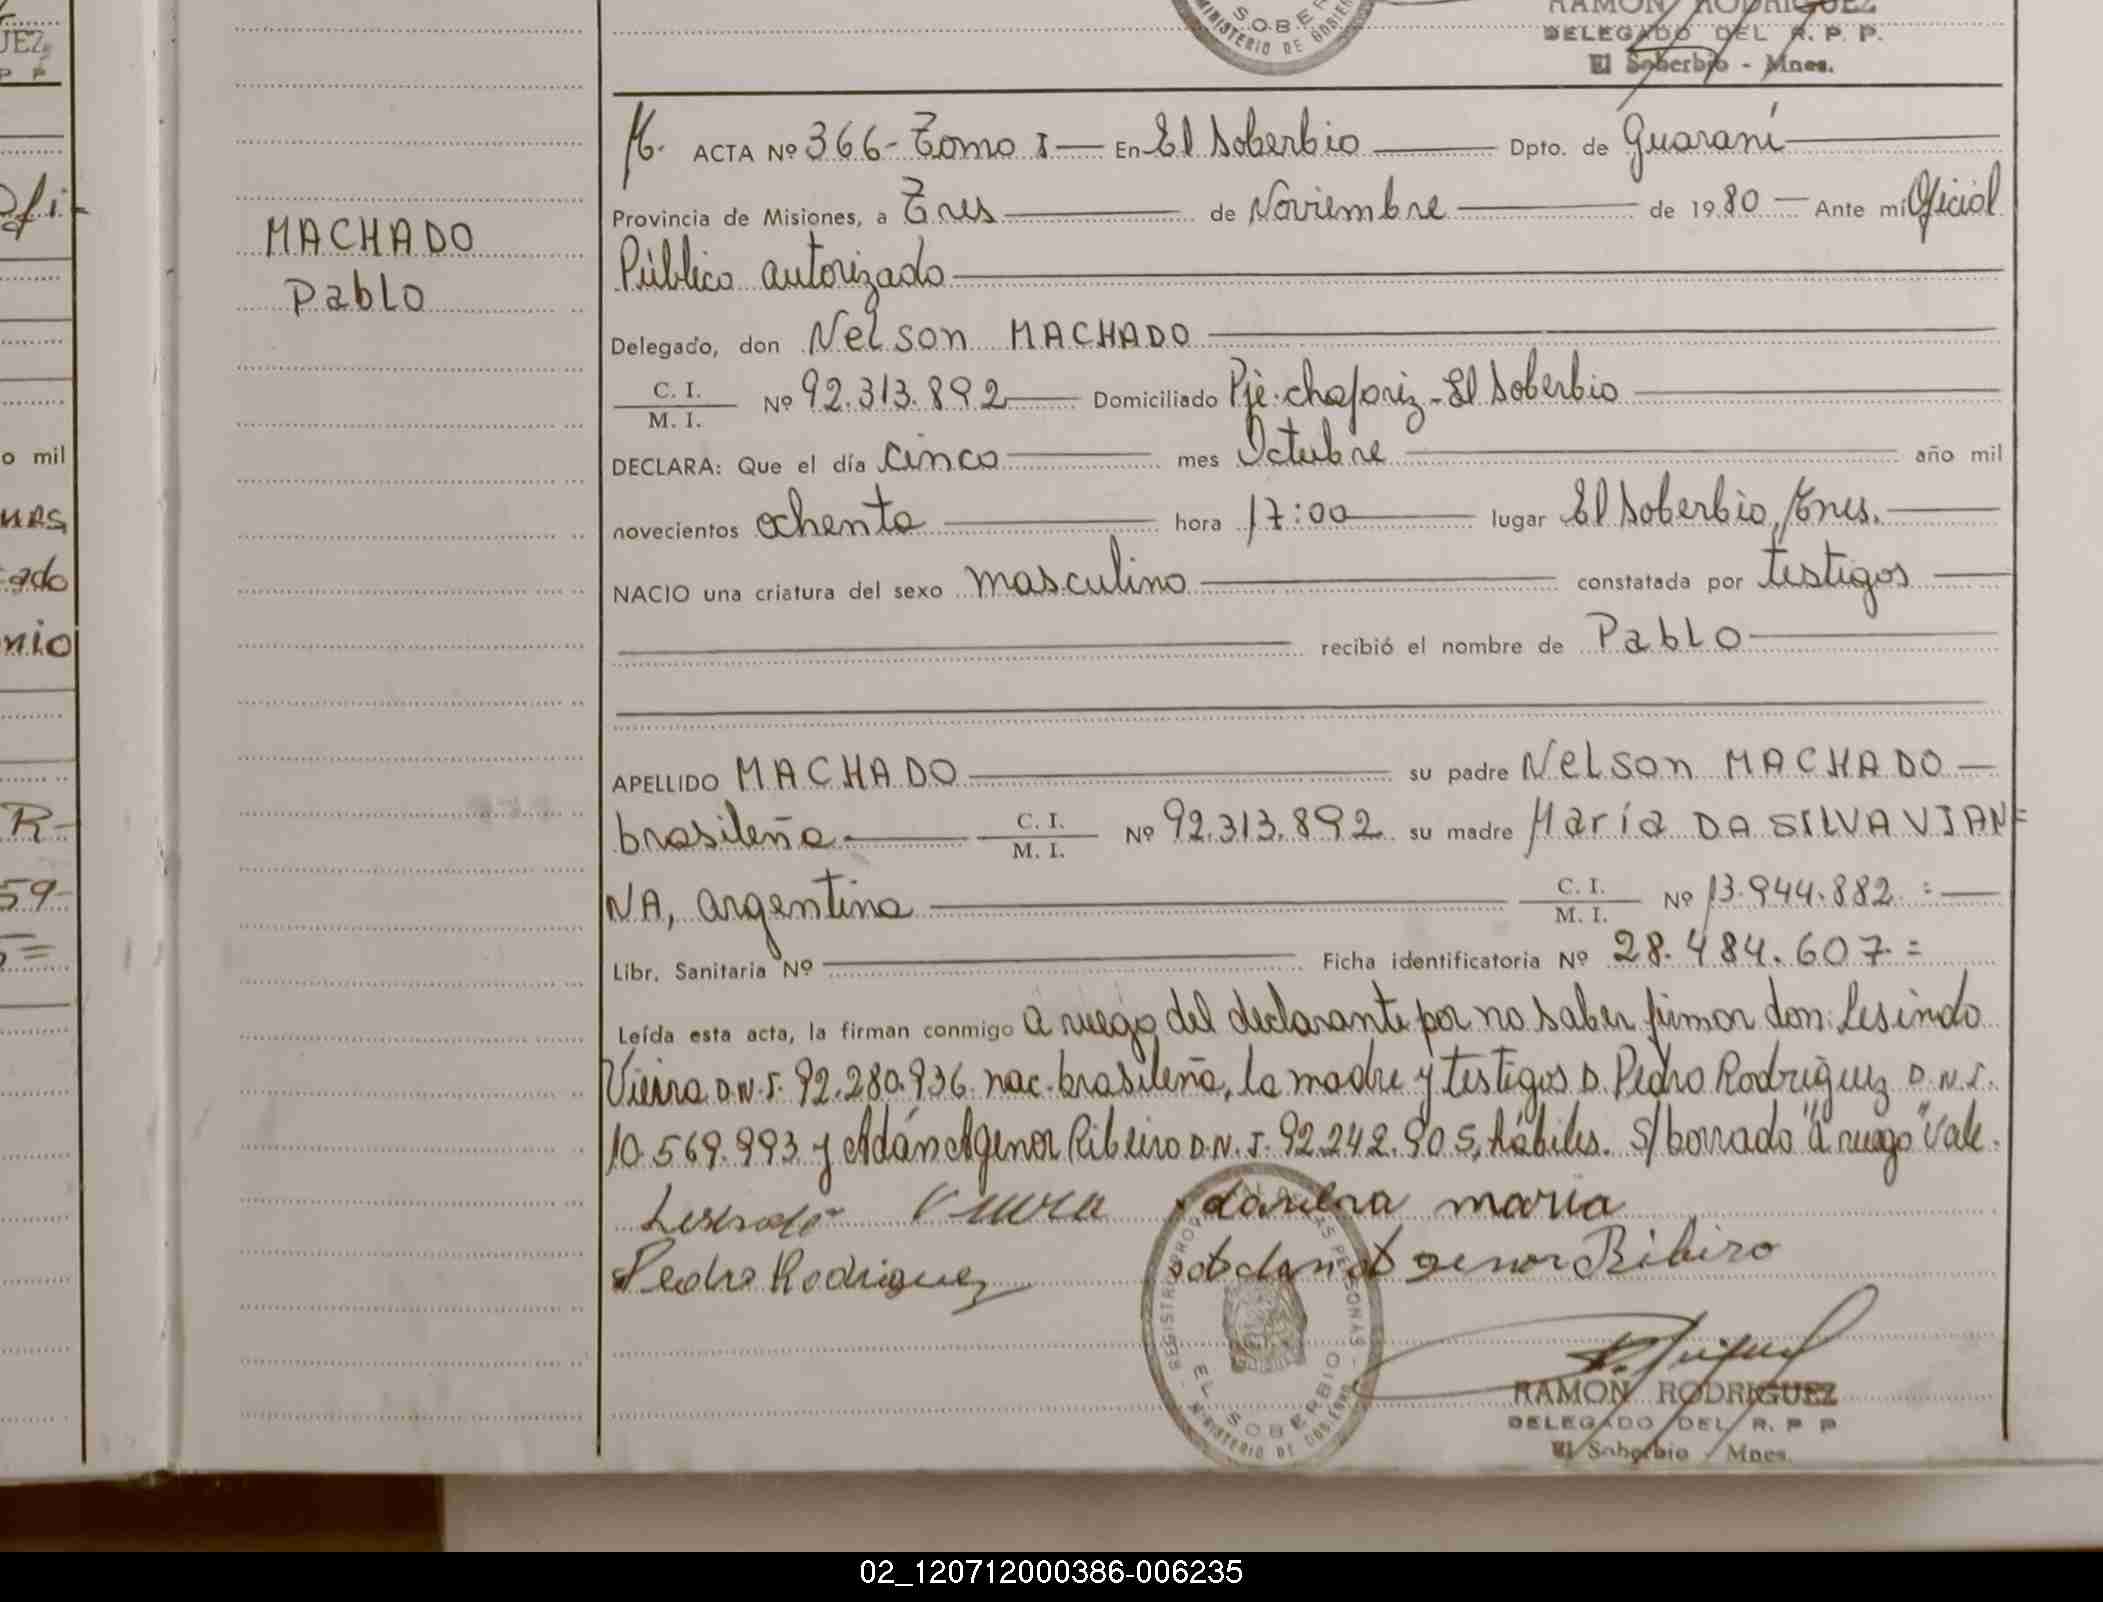 UEZ
P P
SOBER
MINISTERIO DE GOBIER
RAMON RODRIGUEZ
DELEGADO DEL R. P. P.
El Soberbio - Mnes.
ofi-
o mil
ado
nio
R-
59-
MACHADO
Pablo
M. ACTA Nº 366- Tomo I — En El Soberbio — Dpto. de Guaraní —
Provincia de Misiones, a Tres — de Noviembre — de 1980 — Ante mi Oficial
Público autorizado —
Delegado, don Nelson MACHADO —
C. I.
M. I. Nº 92.313.892 — Domiciliado Pje. chafariz - El Soberbio —
DECLARA: Que el día cinco — mes Octubre — año mil
novecientos ochenta — hora 17:00 — lugar El Soberbio, Mnes. —
NACIO una criatura del sexo masculino — constatada por testigos —
— recibió el nombre de Pablo —
APELLIDO MACHADO — su padre Nelson MACHADO —
brasileña — C. I. M. I. Nº 92.313.892 su madre María DA SILVA VIAN=
NA, argentina — C. I. M. I. Nº 13.944.882 = —
Libr. Sanitaria Nº — Ficha identificatoria Nº 28.484.607 =
Leída esta acta, la firman conmigo a ruego del declarante por no saber firmar don: Lesindo
Vieira D.N.I. 92.280.936 nac. brasileña, la madre y testigos D. Pedro Rodriguez D.N.I.
10.569.993 y Adán Agenor Ribeiro D.N.I. 92.242.905, hábiles. S/borrado "a ruego" Vale.
maria
Pedro Rodriguez Agenor Ribiro
REGISTRO PROV. DE LAS PERSONAS
EL SOBERBIO
MINISTERIO DE GOBIERNO
RAMON RODRIGUEZ
DELEGADO DEL R. P P
El Soberbio - Mnes.
02_120712000386-006235